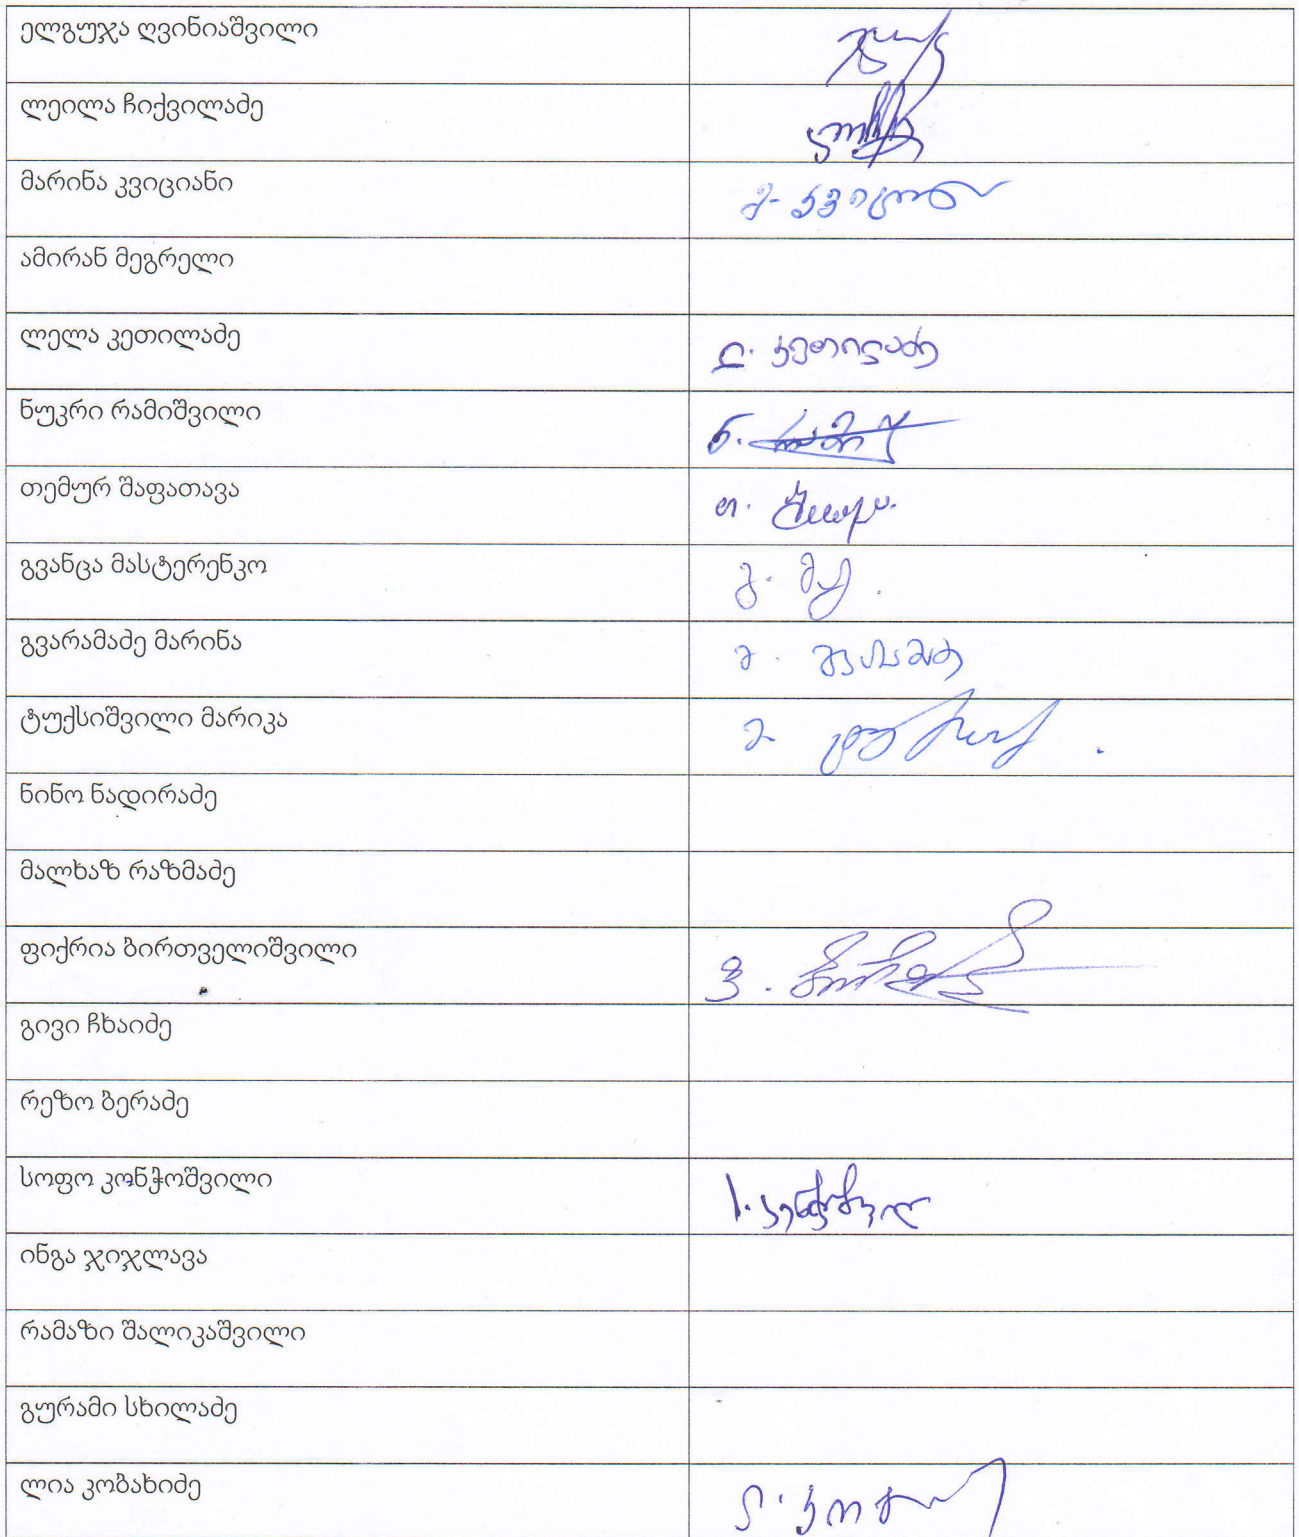 ელგუჯა ღვინიაშვილი
ლეილა ჩიქვილაძე
მარინა კვიციანი მ. კვიციანი
ამირან მეგრელი
ლელა კეთილაძე ლ. კეთილაძე
ნუკრი რამიშვილი ნ.
თემურ შაფათავა თ.
გვანცა მასტერენკო გ.
გვარამაძე მარინა მ. გვარამაძე
ტუქსიშვილი მარიკა მ.
ნინო ნადირაძე
მალხაზ რაზმაძე
ფიქრია ბირთველიშვილი ფ.
გივი ჩხაიძე
რეზო ბერაძე
სოფო კონჭოშვილი ს.
ინგა ჯიჯლავა
რამაზი შალიკაშვილი
გურამი სხილაძე
ლია კობახიძე ლ.